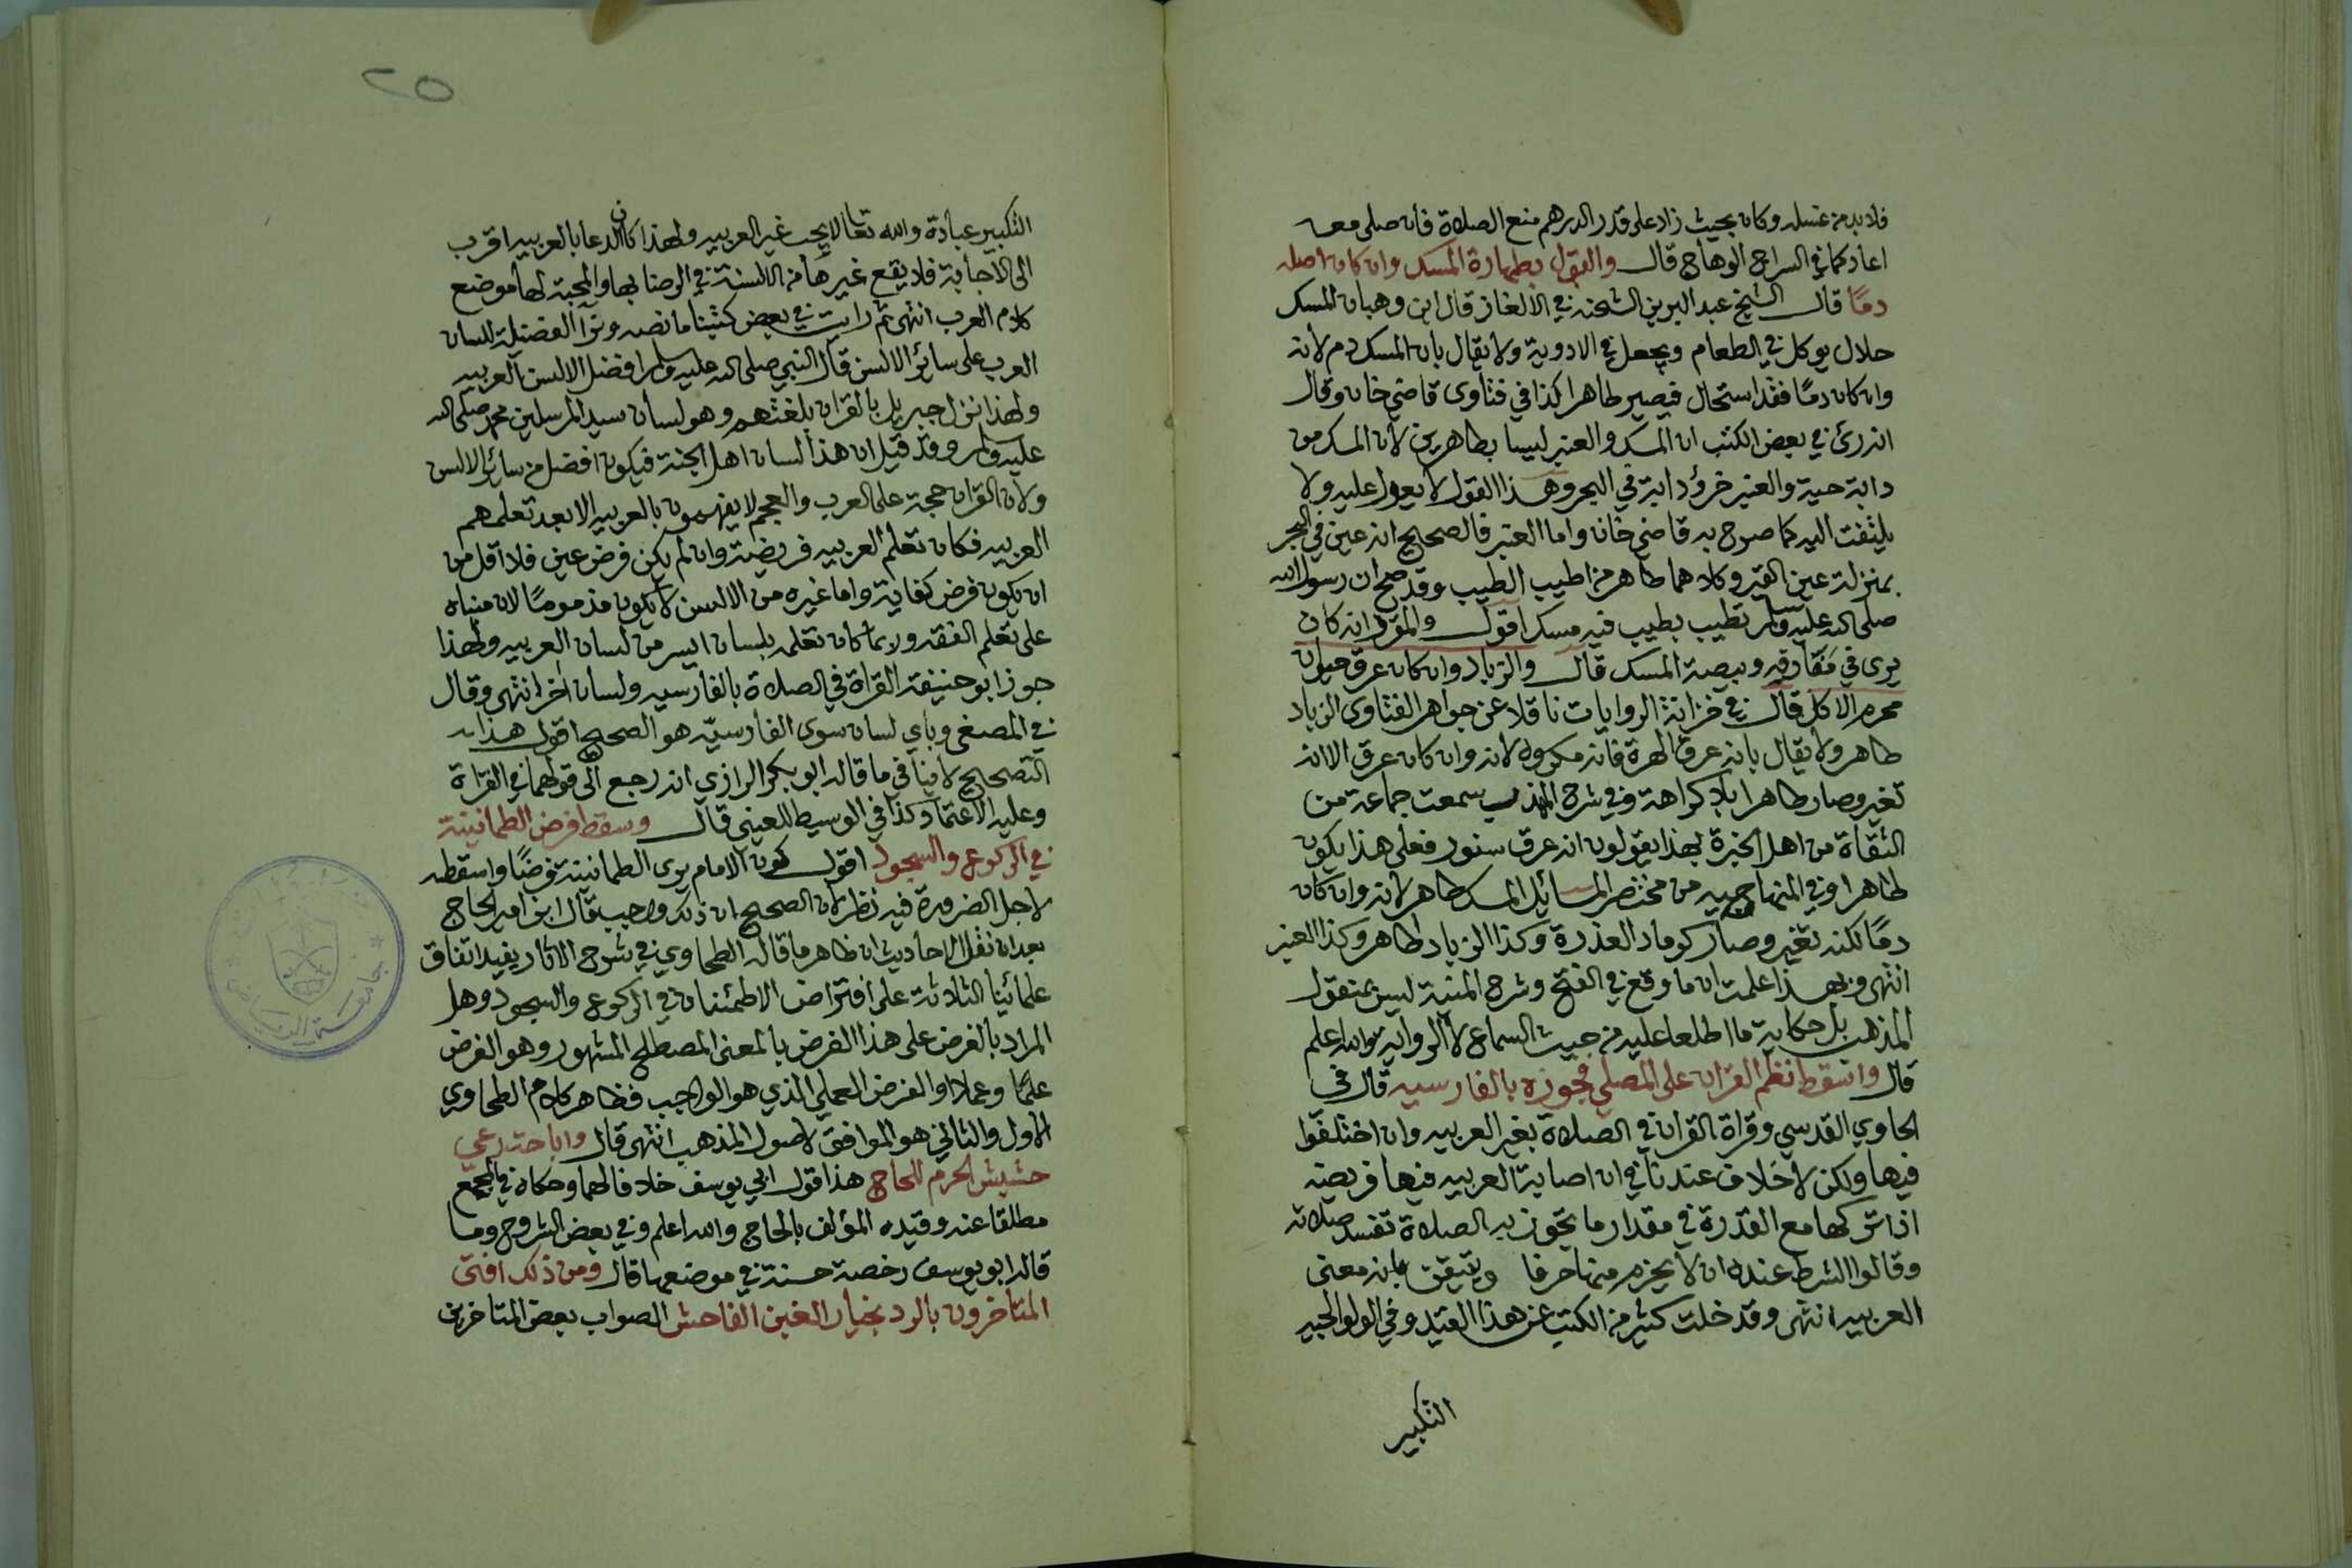 فلابد من غسله وكان بحيث زاد على قدر الدرهم منع الصلاة فان صلى معه
اعاد كما في السراج الوهاج قال والقول بطهارة المسك وان كان اصله
دمًا قال الشيخ عبد البر بن الشحنه في الالغاز قال ابن وهبان المسك
حلال يوكل في الطعام ويجعل في الادوية ولا يقال بان المسك دم لانه
وان كان دمًا فقد استحال فيصير طاهرا كذا في فتاوى قاضي خان وقال
انه رئ في بعض الكتب ان المسك والعنبر ليسا بطاهرين لان المسك من
دابة حية والعنبر خرؤ دابة في البحر وهذا القول لا يعول عليه ولا
يلتفت اليه كما صرح به قاضي خان واما العنبر فالصحيح انه عين في البحر
بمنزلة عين القير وكلاهما طاهر من اطيب الطيب وقد صح ان رسول الله
صلى الله عليه وسلم تطيب بطيب فيه مسك اقول والمقرر انه كان
يرى في مفارقه وبيصة المسك قال والزباد وان كان عرق حيوان
محرم الاكل قال في خزانة الروايات ناقلا عن جواهر الفتاوى الزباد
طاهر ولا يقال بانه عرق الهرة فانه مكروه لانه وان كان عرق الا انه
تغير وصار طاهرا بلا كراهة وفي شرح المهذب سمعت جماعة من
الثقاة من اهل الخبرة بهذا يقولون انه عرق سنور فعلى هذا يكون
طاهرا وفي المنهاجيه من مختصر المسائل المسك طاهر لانه وان كان
دمًا لكنه تغير وصار كرماد العذرة وكذا الزباد طاهر وكذا العنبر
انتهى وبهذا علمت ان ما وقع في الفتح وشرح المنية ليس بمنقول
المذهب بل حكاية ما اطلعا عليه من حيث السماع لا الرواية والله اعلم
قال واسقط نظم القران على المصلي فجوزه بالفارسيه قال في
الحاوي القدسي وقراة القران في الصلاة بغير العربيه وان اختلفوا
فيها ولكن لا خلاف عندنا في ان اصابة العربيه فيها فريضه
اذا تركها مع القدرة في مقدار ما يجوز به الصلاة تفسد صلاته
وقالوا الشرط عنده ان لا يخرم منها حرفا ويتيقن بانه معنى
العربيه انتهى وقد خلت كثير من الكتب عن هذا القيد وفي الولوالجيه
التكبير
٢٥
التكبير عبادة والله تعالى لا يحب غير العربيه ولهذا كان الدعا بالعربيه اقرب
الى الاجابة فلا يقع غيرها من الالسنة في الرضا بها والمحبة لها موضع
كلام العرب انتهى ثم رايت في بعض كتبنا ما نصه ونرا الفضيلة للسان
العرب على سائر الالسن قال النبي صلى الله عليه وسلم افضل الالسن العربيه
ولهذا نزل جبريل بالقران بلغتهم وهو لسان سيد المرسلين محمد صلى الله
عليه وسلم وقد قيل ان هذا لسان اهل الجنة فيكون افضل من سائر الالسن
ولان القران حجة على العرب والعجم لا يفهمون بالعربيه الا بعد تعلمهم
العربيه فكان تعلم العربيه فريضة وان لم يكن فرض عين فلا اقل من
ان يكون فرض كفاية واما غيره من الالسن لا يكون مذمومًا لان مبناه
على تعلم الفقه ولربما كان تعلمه بلسان ايسر من لسان العربيه ولهذا
جوز ابو حنيفة القراة في الصلاة بالفارسيه ولسان اخر انتهى وقال
في المصفى وباي لسان سوى الفارسيّه هو الصحيح اقول هذا
التصحيح لا ينافي ما قاله ابو بكر الرازي انه رجع الى قولهما في القراة
وعليه الاعتماد كذا في الوسيط للعيني قال وسقط فرض الطمانينة
في الركوع والسجود اقول كون الامام يرى الطمانينة فرضًا واسقطه
لاجل الضرورة فيه نظر لان الصحيح ان ذلك واجب قال ابن امير الحاج
بعد ان نقل الاحاديث ان ظاهر ما قاله الطحاوي في شرح الاثار يفيد اتفاق
علمائنا الثلاثة على افتراض الاطمئنان في الركوع والسجود وهل
المراد بالفرض على هذا الفرض بالمعنى المصطلح المشهور وهو الفرض
علمًا وعملا او الفرض العملي الذي هو الواجب فظاهر كلام الطحاوي
الاول والثاني هو الموافق لاصول المذهب انتهى قال واباحة رعي
حشيش الحرم للحاج هذا قول ابي يوسف خلافا لهما وحكاه في المجمع
مطلقا عنه وقيده المؤلف بالحاج والله اعلم وفي بعض الشروح وما
قاله ابو يوسف رخصة حسنة في موضعها قال ومن ذلك افتى
المتاخرون بالرد بخيار الغبن الفاحش الصواب بعض المتاخرين
جامعة الرياض